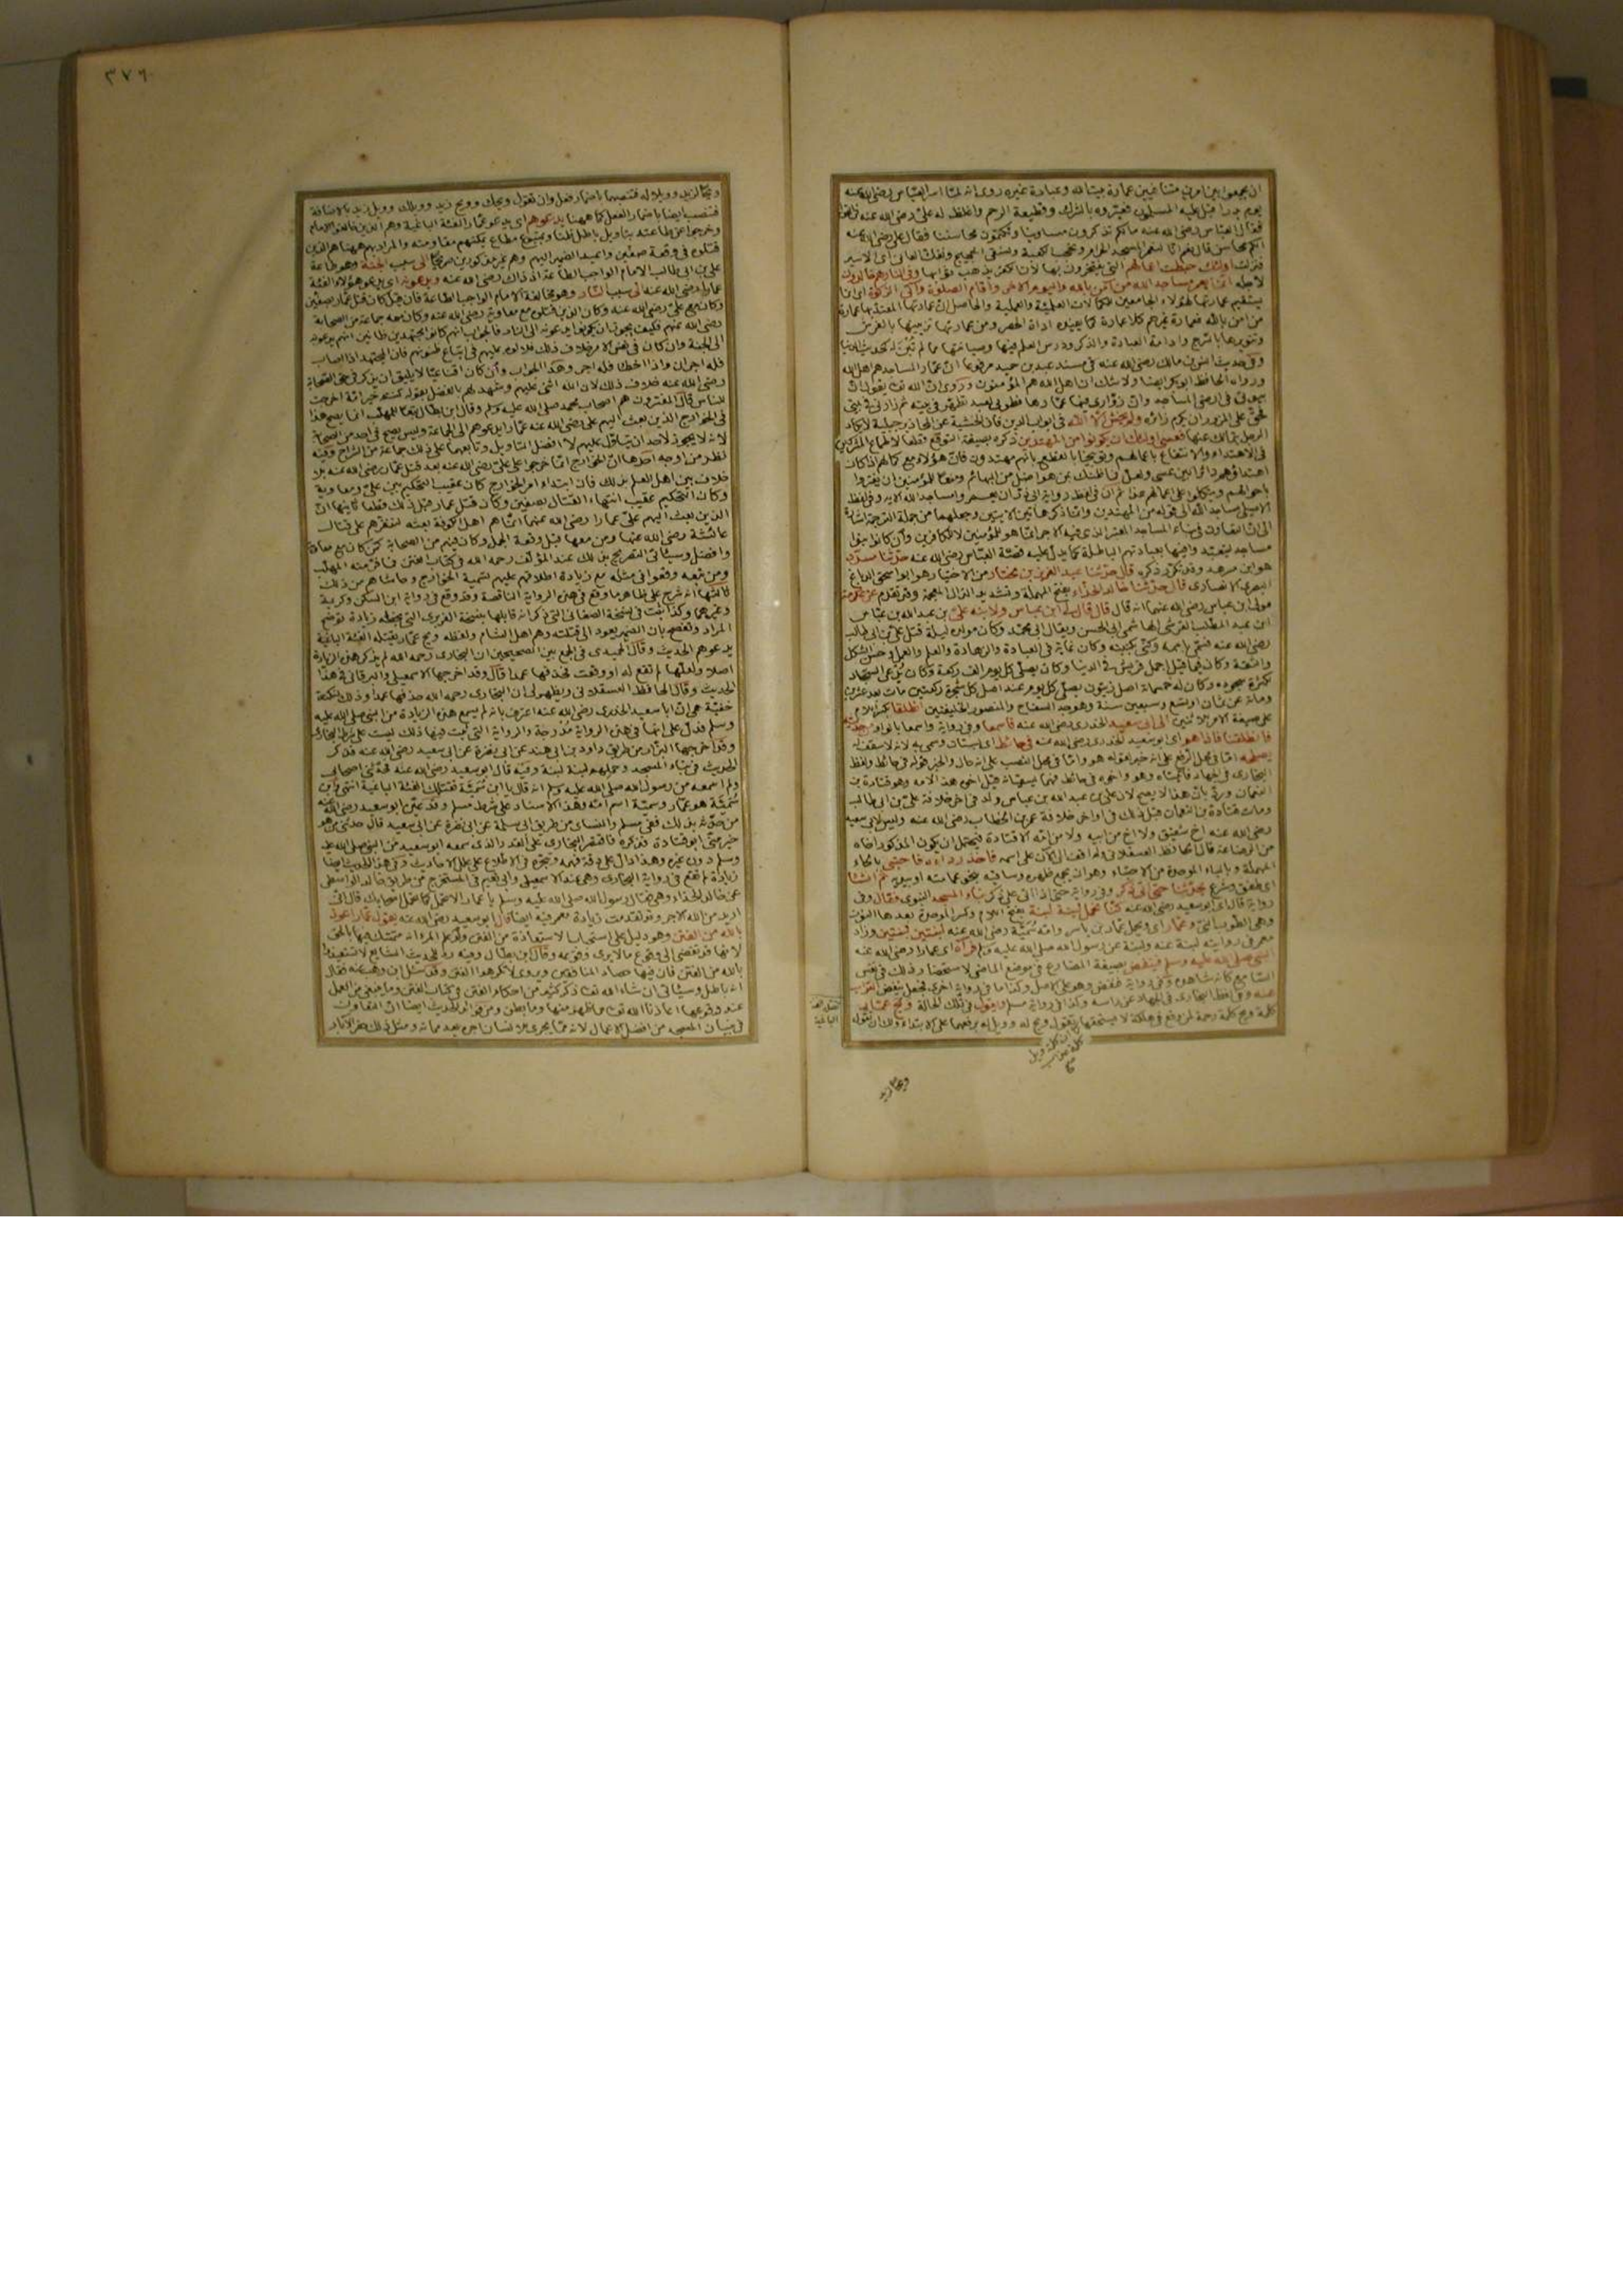 ان يجمعوا بين امرين متنافيين عمارة بيت الله وعبادة غيره روى انه لما اسر العباس رضى الله عنه
يوم بدر اقبل عليه المسلمون فعيروه بالشرك وقطيعة الرحم واغلظ له على رضى الله عنه
فقال العباس رضى الله عنه ما لكم تذكرون مساوينا وتكتمون محاسننا فقال على رضى الله عنه
الكم محاسن قال نعم انا لنعمر المسجد الحرام ونحجب الكعبة ونسقى الحجيج ونفك العانى اى الاسير
فنزلت اولئك حبطت اعمالهم التى يفتخرون بها لان الكفر يذهب ثوابها وفى النار هم خالدون
لاجله انما يعمر مساجد الله من آمن بالله واليوم الآخر واقام الصلوة وآتى الزكوة اى انما
يستقيم عمارتها لهؤلاء الجامعين للكمالات العلمية والعملية والحاصل ان عمارتها المعتد بها عمارة
من امن بالله فعمارة غيرهم كلا عمارة كما يفيده اداة الحصر ومن عمارتها تزيينها بالفرش
وتنويرها بالسرج وادامة العبادة والذكر ودرس العلم فيها وصيانتها مما لم تبن له كحديث الدنيا
وفى حديث انس بن مالك رضى الله عنه فى مسند عبد بن حميد مرفوعا ان عمار المساجد هم اهل الله
ورواه الحافظ ابو بكر ايضا ولا شك ان اهل الله هم المؤمنون وروى ان الله تعالى يقول ان
بيوتى فى ارضى المساجد وان زوارى فيها عمارها فطوبى لعبد تطهر فى بيته ثم زارنى فى بيتى
فحق على المزور ان يكرم زائره ولم يخش الا الله فى ابواب الدين فان الخشية عن المحاذير جبلية لا يكاد
الرجل يتمالك عنها فعسى اولئك ان يكونوا من المهتدين ذكره بصيغة التوقع قطعا لاطماع المشركين
فى الاهتداء والانتفاع باعمالهم وتوبيخا بالقطع بانهم مهتدون فان هؤلاء مع كمالهم اذا كان
اهتداؤهم دائرا بين عسى ولعل فما ظنك بمن هو اضل من البهائم ومنعا للمؤمنين ان يغتروا
باحوالهم ويتكلوا على اعمالهم هذا ثم ان
مساجد ليتعبد وافيها بعبادتهم الباطلة كما يدل عليه قصة العباس رضى الله عنه حدثنا مسدد
هو ابن مسرهد وقد تكرر ذكره قال حدثنا عبد العزيز بن مختار من الاختيار هو ابو اسحق الدباغ
البصرى الانصارى قال حدثنا خالد الحذاء بفتح المهملة وتشديد الذال المعجمة وقد تقدم عن عكرمة
مولى ابن عباس رضى الله عنهما انه قال قال لى ابن عباس ولابنه على بن عبد الله بن عباس
ابن عبد المطلب القرشى الهاشمى ابى الحسن ويقال ابى محمد وكان مولده ليلة قتل على بن ابى طالب
رضى الله عنه فسمى باسمه وكنى بكنيته وكان غاية فى العبادة والزهادة والعلم والعمل وحسن الشكل
وكان فيما قيل اجمل قريش فى الدنيا وكان يصلى كل يوم الف ركعة وكان يدعى السجاد
لكثرة سجوده وكان له خمسمائة اصل زيتون يصلى كل يوم عند اصل كل شجرة ركعتين مات بعد عشرين
ومائة عن ثمان او تسع وسبعين سنة وهو جد السفاح والمنصور الخليفتين انطلقا بكسر اللام
على صيغة الامر للاثنين الى ابى سعيد الخدرى رضى الله عنه فاسمعا وفى رواية واسمعا بالواو من حديثه
فانطلقنا فاذا هو اى ابو سعيد الخدرى رضى الله عنه فى حائط اى بستان وسمى به لانه لا سقف له
يصلحه
النعمان ورد بان هذا لا يصح لان على بن عبد الله بن عباس ولد فى آخر خلافة على بن ابى طالب
ومات قتادة بن النعمان قبل ذلك فى اواخر خلافة عمر بن الخطاب رضى الله عنه وليس لابى سعيد
رضى الله عنه اخ شقيق ولا اخ من ابيه ولا من امه الا قتادة فيحتمل ان يكون المذكور اخاه
من الرضاعة قال الحافظ العسقلانى ولم اقف الى الآن على اسمه فاخذ رداءه فاحتبى بالحاء
المهملة وبالباء الموحدة من الاحتباء وهو ان يجمع ظهره وساقيه بنحو عمامته او بيديه ثم انشأ
اى طفق وشرع يحدثنا حتى اتى ذكر وفى رواية حتى اذا اتى على ذكر بناء المسجد النبوى فقال وفى
رواية قال اى ابو سعيد رضى الله عنه كنا نحمل لبنة لبنة بفتح اللام وكسر الموحدة بعدها النون
وهى الطوب النى وعمار اى ويحمل عمار بن ياسر وامه سمية رضى الله عنه لبنتين لبنتين وزاد
معمر فى روايته لبنة عنه ولبنة عن رسول الله صلى الله عليه وسلم فرآه اى عمارا رضى الله عنه
النبى صلى الله عليه وسلم فينفض بصيغة المضارع فى موضع الماضى لاستحضار ذلك فى نفس
السامع كانه شاهده وفى رواية فنفض وهو على الاصل وكذا ما فى رواية اخرى فجعل ينفض التراب
عنه وفى لفظ البخارى فى الجهاد عن راسه وكذا فى رواية مسلم ويقول فى تلك الحالة ويح عمار
كلمة ويح كلمة رحمة لمن وقع فى هلكة لا يستحقها
تقتله الفئة
الباغية
ويحا لزيد
٣٧٦
ويحا لزيد وويلا له فتنصبهما باضمار فعل وان تقول ويحك وويح زيد وويلك وويل زيد بالاضافة
فتنصب ايضا باضمار الفعل كما ههنا يدعوهم اى يدعو عمار الفئة الباغية وهم الذين خالفوا الامام
وخرجوا عن طاعته بتاويل باطل ظنا وبمتبوع مطاع
قتلوه فى وقعة صفين واعيد الضمير اليهم وهم غير مذكورين صريحا الى سبب الجنة وهو طاعة
على بن ابى طالب الامام الواجب الطاعة اذ ذاك رضى الله عنه ويدعونه اى يدعو هؤلاء الفئة
عمارا رضى الله عنه الى سبب النار وهو مخالفة الامام الواجب الطاعة فان قيل كان قتل عمار بصفين
وكان مع على رضى الله عنه وكان الذين قتلوه مع معاوية رضى الله عنه وكان معه جماعة من الصحابة
رضى الله عنهم فكيف يجوز ان يكونوا يدعونه الى النار فالجواب انهم كانوا مجتهدين ظانين انهم يدعونه
الى الجنة وان كان فى نفس الامر خلاف ذلك فلا لوم عليهم فى اتباع ظنونهم فان المجتهد اذا اصاب
فله اجران واذا اخطا فله اجر وهذا الجواب وان كان اقناعيا لا يليق ان يذكر فى حق الصحابة
رضى الله عنه خلاف ذلك لان الله اثنى عليهم وشهد لهم بالفضل بقوله كنتم خير امة اخرجت
للناس قال المفسرون هم اصحاب محمد صلى الله عليه وسلم وقال ابن بطال تبعا للمهلب انما يصح هذا
فى الخوارج الذين بعث اليهم على رضى الله عنه عمارا يدعوهم الى الجماعة وليس يصح فى احد من الصحابة
لانه لا يجوز لاحد ان يتاول عليهم الا افضل التاويل وتابعهما على ذلك جماعة من الشراح وفيه
نظر من اوجه احدها ان الخوارج انما خرجوا على على رضى الله عنه بعد قتل عمار رضى الله عنه بلا
خلاف بين اهل العلم بذلك فان ابتداء امر الخوارج كان عقيب التحكيم بين على ومعاوية
وكان التحكيم عقيب انتهاء القتال بصفين وكان قتل عمار قبل ذلك قطعا ثانيها ان
الذين بعث اليهم على عمارا رضى الله عنهما انما هم اهل الكوفة بعثه ليستنفرهم على قتال
عائشة رضى الله عنها ومن معها قبل وقعة الجمل وكان فيهم من الصحابة كمن كان مع معاوية
وافضل وسيأتى التصريح بذلك عند المؤلف رحمه الله فى كتاب الفتن فما فر منه المهلب
ومن تبعه وقعوا فى مثله مع زيادة اطلاقهم عليهم تسمية الخوارج وحاشاهم من ذلك
ثالثها انه شرح على ظاهر ما وقع فى هذه الرواية الناقصة وقد وقع فى رواية ابن السكن وكريمة
وغيرهما وكذا ثبت فى نسخة الصغانى التى ذكر انه قابلها بنسخة الفربرى التى بخطه زيادة توضح
المراد وتفصح بان الضمير يعود الى قتلته وهم اهل الشام ولفظه ويح عمار تقتله الفئة الباغية
يدعوهم الحديث وقال الحميدى فى الجمع بين الصحيحين ان البخارى رحمه الله لم يذكر هذه الزيادة
اصلا ولعلها لم تقع له او وقعت فحذفها عمدا قال وقد اخرجها الاسمعيلى والبرقانى فى هذا
الحديث وقال الحافظ العسقلانى ويظهر لى ان البخارى رحمه الله حذفها عمدا وذلك لنكتة
خفية هى ان ابا سعيد الخدرى رضى الله عنه اعترف بانه لم يسمع هذه الزيادة من النبى صلى الله عليه
وسلم فدل على انها فى هذه الرواية مدرجة والرواية التى ثبت فيها ذلك ليست على شرط البخارى
وقد اخرجها البزار من طريق داود بن ابى هند عن ابى نضرة عن ابى سعيد رضى الله عنه فذكر
الحديث فى بناء المسجد وحملهم لبنة لبنة وفيه قال ابو سعيد رضى الله عنه فحدثنى اصحابى
ولم اسمعه من رسول الله صلى الله عليه وسلم انه قال يا ابن سمية تقتلك الفئة الباغية انتهى وابن
سمية هو عمار وسمية اسم امه وهذا الاسناد على شرط مسلم وقد عين ابو سعيد رضى الله عنه
من حدثه بذلك ففى مسلم والنسائى من طريق ابى سلمة عن ابى نضرة عن ابى سعيد قال حدثنى من هو
خير منى ابو قتادة فذكره فاقتصر البخارى على القدر الذى سمعه ابو سعيد من النبى صلى الله عليه
وسلم دون غيره وهذا دال على دقة فهمه وتبحره فى الاطلاع على علل الاحاديث وفى هذا الحديث ايضا
زيادة لم تقع فى رواية البخارى وهى عند الاسمعيلى وابى نعيم فى المستخرج من طريق خالد الواسطى
عن خالد الحذاء وهى فقال رسول الله صلى الله عليه وسلم يا عمار الا تحمل كما يحمل اصحابك قال انى
اريد من الله الاجر وقد تقدمت زيادة معمر فيه ايضا قال ابو سعيد رضى الله عنه يقول عمار اعوذ
بالله من الفتن وهو دليل على استحباب الاستعاذة من الفتن ولو علم المرء انه متمسك فيها بالحق
لانها قد تفضى الى وقوع ما لا يرى وقوعه وقال ابن بطال وفيه رد للحديث الشايع لا تستعيذوا
بالله من الفتن فان فيها حصاد المنافقين ويروى لا تكرهوا الفتن وقد سئل ابن وهب عنه فقال
انه باطل وسيأتى ان شاء الله تعالى ذكر كثير من احكام الفتن فى كتاب الفتن وما ينبغى من العمل
عند وقوعها اعاذنا الله تعالى مما ظهر منها وما بطن ومن فوائد الحديث ايضا ان التعاون
فى بنيان المسجد من افضل الاعمال لانه مما يجرى للانسان اجره بعد مماته ومثل ذلك حفر الآبار